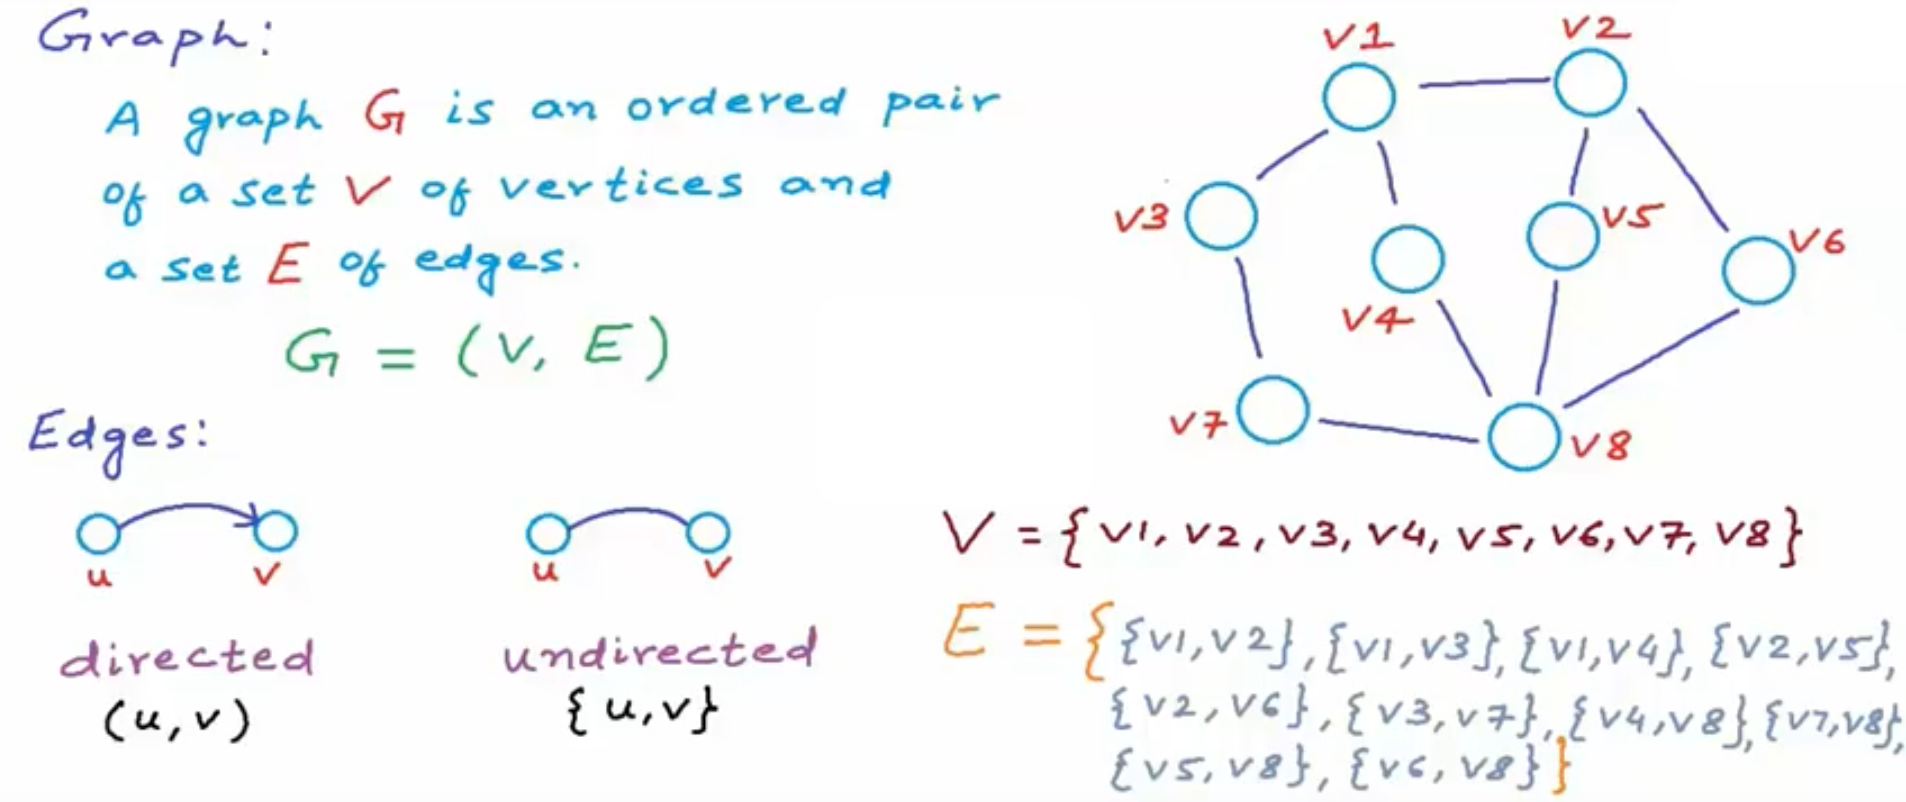 Graph:
A graph G is an ordered pair
of a set V of vertices and
a set E of edges.
G = (V, E)
Edges:
u
v
directed
(u,v)
u
v
undirected
{u,v}
v1
v2
v3
v4
v5
v6
v7
v8
V = {v1, v2, v3, v4, v5, v6, v7, v8}
E = {{v1,v2},{v1,v3},{v1,v4},{v2,v5},
{v2,v6},{v3,v7},{v4,v8},{v7,v8},
{v5,v8},{v6,v8}}